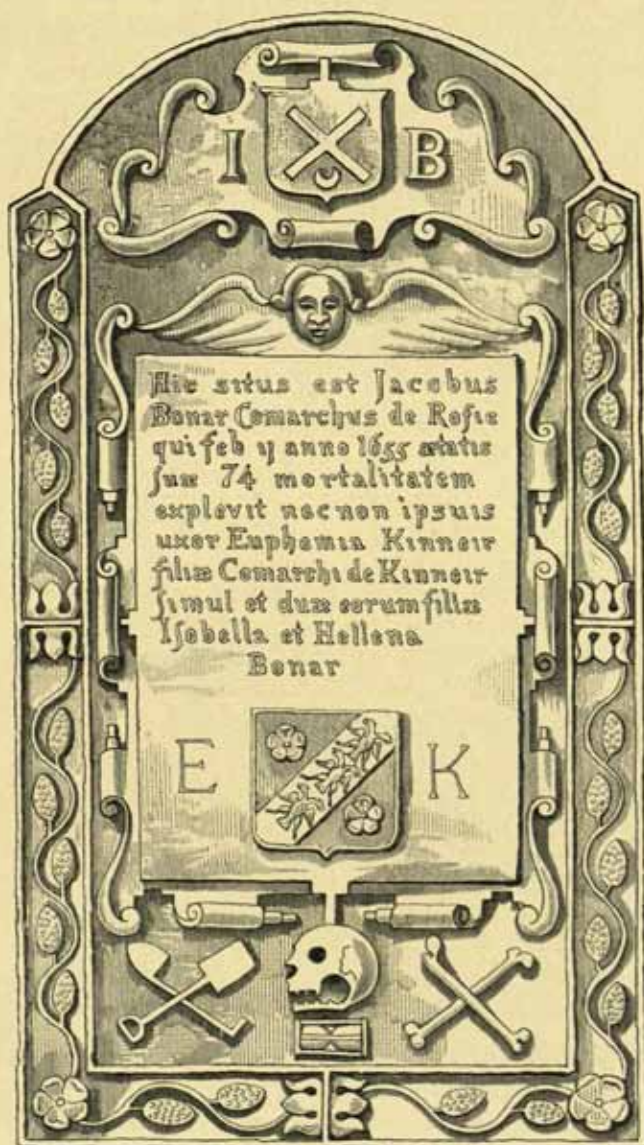 I B
Hic situs est Jacobus
Bonar Comarchus de Rosie
qui feb ij anno 1655 ætatis
suæ 74 mortalitatem
explevit necnon ipsuis
uxor Euphemia Kinneir
filiæ Comarchi de Kinneir
simul et duæ eorum filiæ
Isobella et Hellena
Bonar
E K